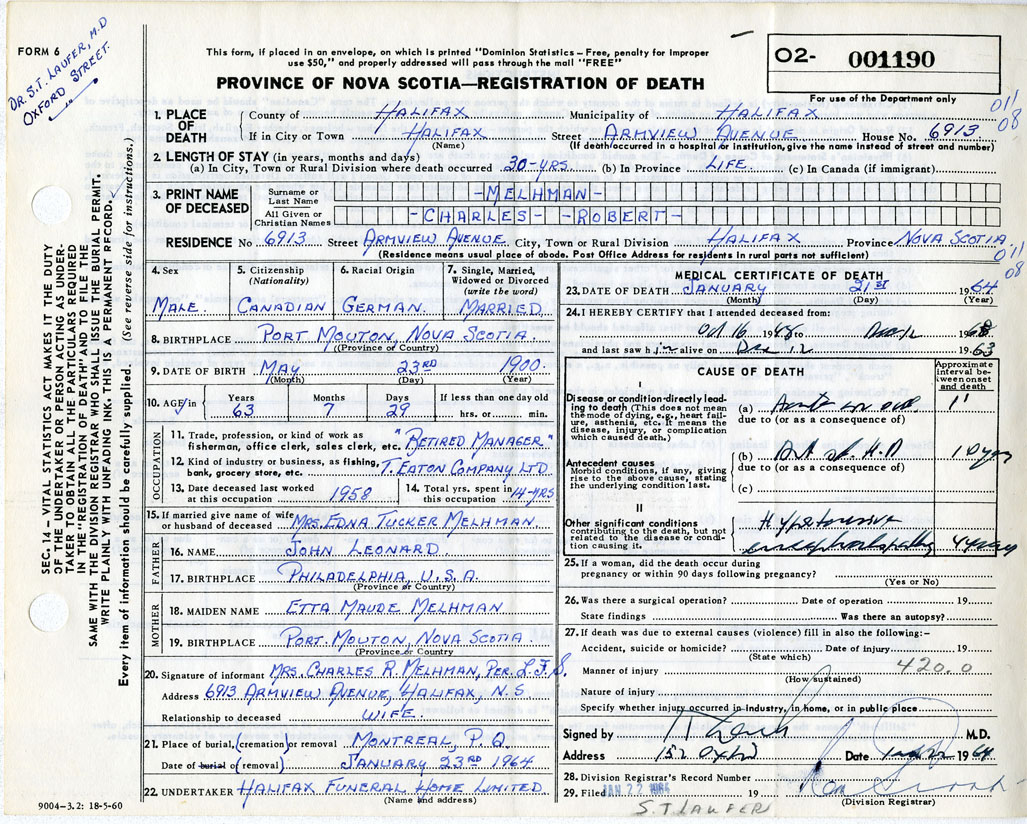 FORM 6
DR. S.T. LAUFER, M.D
OXFORD STREET.
This form, if placed in an envelope, on which is printed "Dominion Statistics – Free, penalty for improper
use $50," and properly addressed will pass through the mail "FREE"
PROVINCE OF NOVA SCOTIA—REGISTRATION OF DEATH
02- 001190
For use of the Department only
011
08
1. PLACE OF DEATH
County of HALIFAX Municipality of HALIFAX
If in City or Town HALIFAX Street ARMVIEW AVENUE House No. 6913
(Name) (If death occurred in a hospital or institution, give the name instead of street and number)
2. LENGTH OF STAY (in years, months and days)
(a) In City, Town or Rural Division where death occurred 30-YRS. (b) In Province LIFE. (c) In Canada (if immigrant)
3. PRINT NAME OF DECEASED
Surname or Last Name -MELHMAN-
All Given or Christian Names -CHARLES- -ROBERT-
RESIDENCE No. 6913 Street ARMVIEW AVENUE City, Town or Rural Division HALIFAX Province NOVA SCOTIA
(Residence means usual place of abode. Post Office Address for residents in rural parts not sufficient)
011
08
4. Sex
MALE.
5. Citizenship (Nationality)
CANADIAN
6. Racial Origin
GERMAN.
7. Single, Married, Widowed or Divorced (write the word)
MARRIED.
8. BIRTHPLACE PORT MOUTON, NOVA SCOTIA.
(Province or Country)
9. DATE OF BIRTH MAY 23RD 1900.
(Month) (Day) (Year)
10. AGE in Years Months Days If less than one day old
63 7 29 hrs. or min.
OCCUPATION
11. Trade, profession, or kind of work as
fisherman, office clerk, sales clerk, etc. "RETIRED MANAGER"
12. Kind of industry or business, as fishing,
bank, grocery store, etc. T. EATON COMPANY LTD
13. Date deceased last worked
at this occupation 1958
14. Total yrs. spent in
this occupation 14-YRS
15. If married give name of wife
or husband of deceased MRS. EDNA TUCKER MELHMAN.
FATHER
16. NAME JOHN LEONARD
17. BIRTHPLACE PHILADELPHIA, U.S.A.
(Province or Country)
MOTHER
18. MAIDEN NAME ETTA MAUDE MELHMAN
19. BIRTHPLACE PORT. MOUTON, NOVA SCOTIA
(Province or Country)
20. Signature of informant MRS. CHARLES R. MELHMAN, PER. L.F.S.
Address 6913 ARMVIEW AVENUE, HALIFAX, N.S
Relationship to deceased WIFE.
21. Place of burial, (cremation) or removal MONTREAL, P.Q.
Date of burial or (removal) JANUARY 23RD 1964
22. UNDERTAKER HALIFAX FUNERAL HOME LIMITED
(Name and address)
9004-3.2: 18-5-60
MEDICAL CERTIFICATE OF DEATH
23. DATE OF DEATH JANUARY 21ST 1964
(Month) (Day) (Year)
24. I HEREBY CERTIFY that I attended deceased from:
Oct 16 1948 to Dec 12 19
and last saw him alive on Dec 12 1963
CAUSE OF DEATH
Approximate interval between onset and death
I
Disease or condition directly leading to death (This does not mean the mode of dying, e.g., heart failure, asthenia, etc. It means the injury, or complication which caused death.)
(a)
due to (or as a consequence of)
Antecedent causes
Morbid conditions, if any, giving rise to the above cause, stating the underlying condition last.
(b) H.D 10 years
due to (or as a consequence of)
(c)
II
Other significant conditions contributing to the death, but not related to the disease or condition causing it.
Hypertensive
encephalopathy 4 years
25. If a woman, did the death occur during
pregnancy or within 90 days following pregnancy?
(Yes or No)
26. Was there a surgical operation? Date of operation 19
State findings Was there an autopsy?
27. If death was due to external causes (violence) fill in also the following:–
Accident, suicide or homicide? Date of injury 19
(State which)
Manner of injury 420.0
(How sustained)
Nature of injury
Specify whether injury occurred in industry, in home, or in public place
Signed by M.D.
Address 152 Oxford Date 1964
28. Division Registrar's Record Number
29. Filed JAN 22 1964 19
(Division Registrar)
S.T LAUFER
SEC. 14 – VITAL STATISTICS ACT MAKES IT THE DUTY
OF THE UNDERTAKER OR PERSON ACTING AS UNDER-
TAKER TO OBTAIN ALL THE PARTICULARS REQUIRED
IN THE "REGISTRATION OF DEATH" AND TO FILE THE
SAME WITH THE DIVISION REGISTRAR WHO SHALL ISSUE THE BURIAL PERMIT.
WRITE PLAINLY WITH UNFADING INK. THIS IS A PERMANENT RECORD.
Every item of information should be carefully supplied. (See reverse side for instructions.)